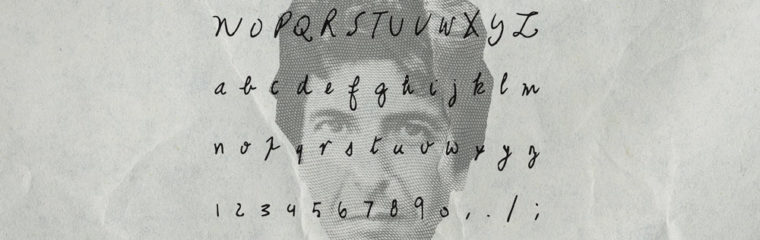 N O P Q R S T U V W X Y Z
a b c d e f g h i j k l m
n o p q r s t u v w x y z
1 2 3 4 5 6 7 8 9 0 , . / ;